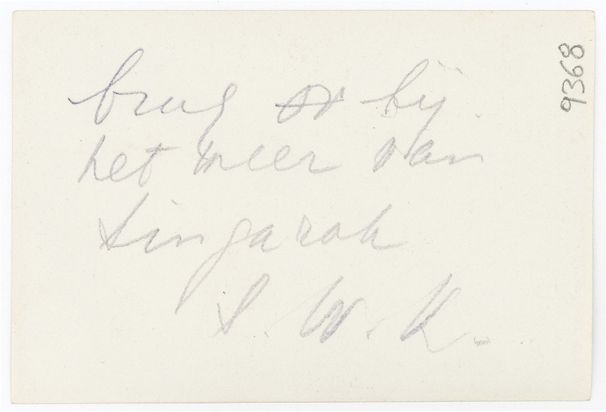 brug bij
het meer van
Singarah
S. W. K.
9368